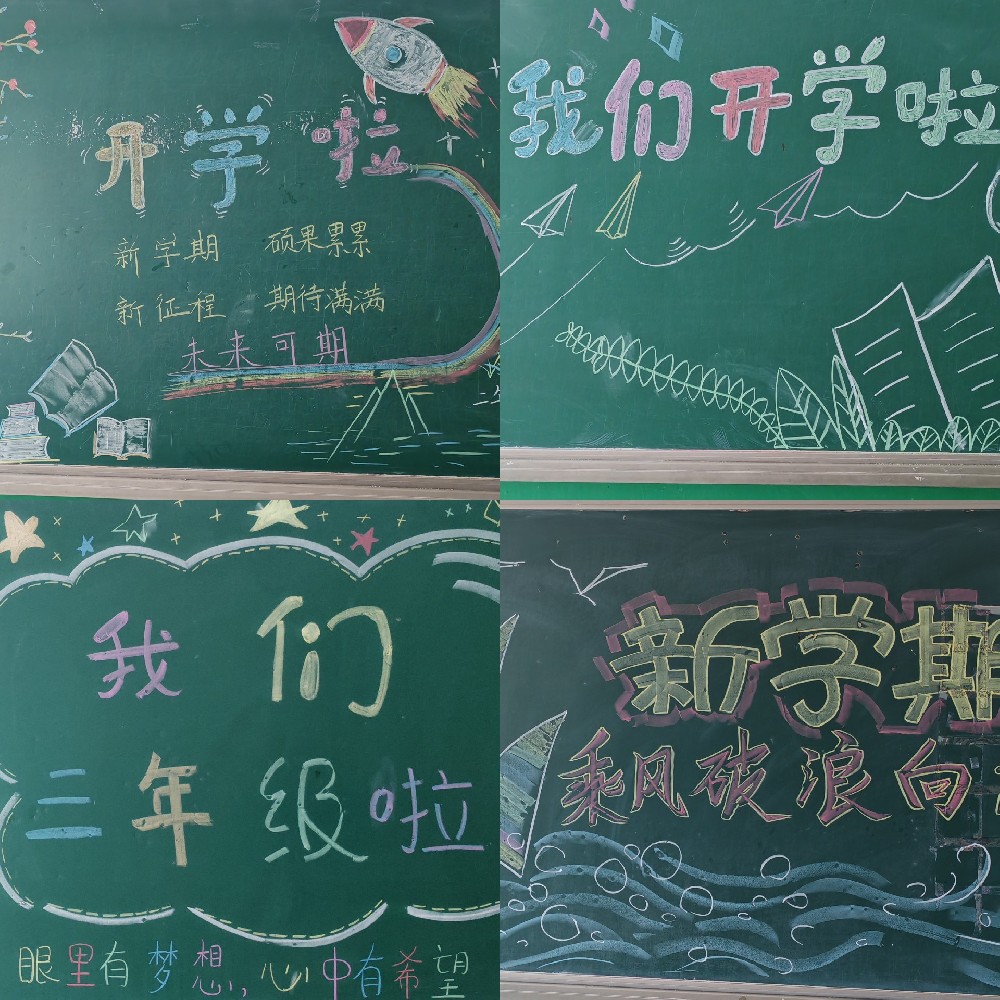 开学啦
新学期 硕果累累
新征程 期待满满
未来可期
我们开学啦
我们
三年级啦
眼里有梦想,心中有希望
新学期
乘风破浪向